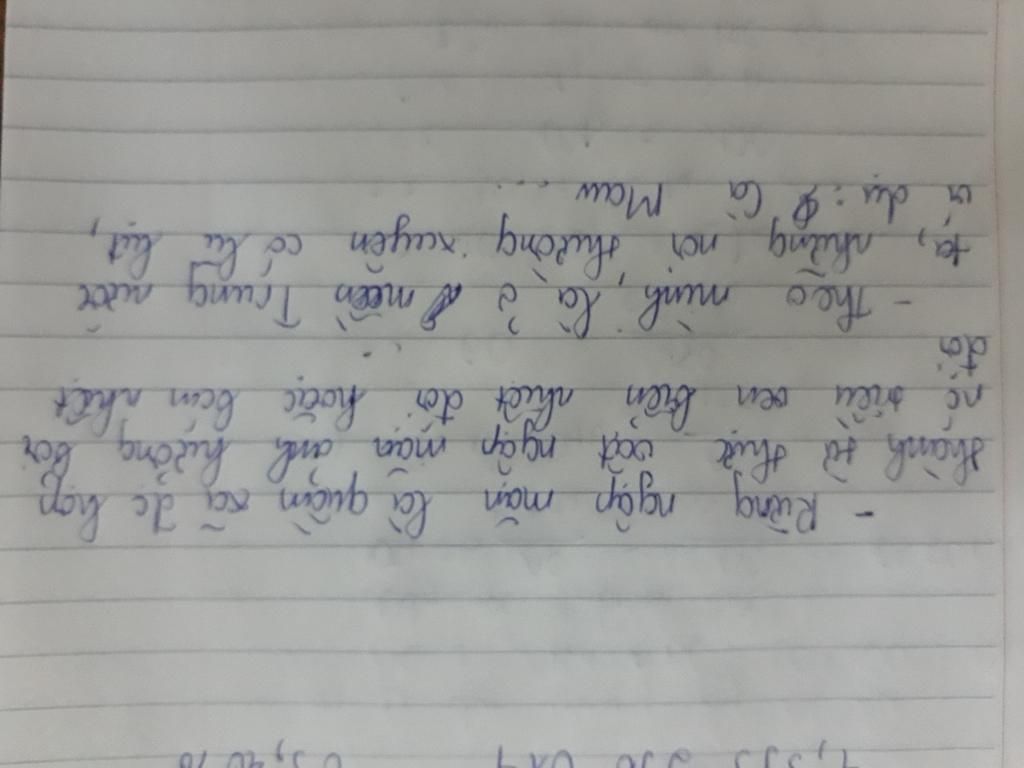 - Rừng ngập mặn là quần xã đc hợp
thành từ thực vật ngập mặn ảnh hưởng bởi
nó triều ven biển nhiệt đới hoặc bán nhiệt
đới
- Theo mình, là ở miền Trung nước
ta, những nơi thường xuyên có lũ lụt,
ví dụ: Cà Mau ...